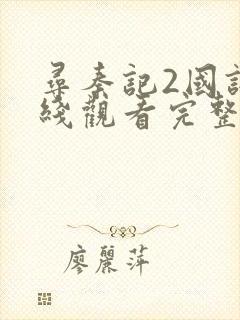 尋秦記2國語
綫觀看完整
廖麗萍